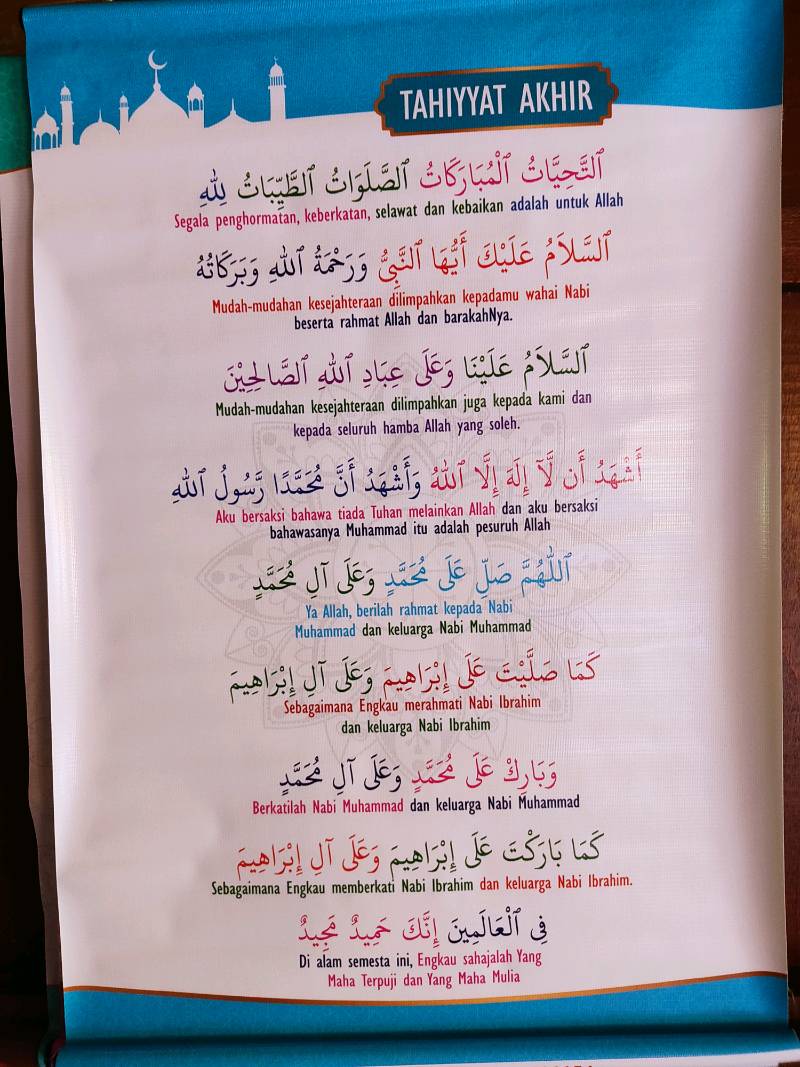 TAHIYYAT AKHIR
ٱلتَّحِيَّاتُ ٱلْمُبَارَكَاتُ ٱلصَّلَوَاتُ ٱلطَّيِّبَاتُ لِلّٰهِ
Segala penghormatan, keberkatan, selawat dan kebaikan adalah untuk Allah
ٱلسَّلاَمُ عَلَيْكَ أَيُّهَا ٱلنَّبِيُّ وَرَحْمَةُ ٱللهِ وَبَرَكَاتُهُ
Mudah-mudahan kesejahteraan dilimpahkan kepadamu wahai Nabi
beserta rahmat Allah dan barakahNya.
ٱلسَّلاَمُ عَلَيْنَا وَعَلَى عِبَادِ ٱللهِ ٱلصَّالِحِيْنَ
Mudah-mudahan kesejahteraan dilimpahkan juga kepada kami dan
kepada seluruh hamba Allah yang soleh.
أَشْهَدُ أَن لَّآ إِلَهَ إِلَّا ٱللهُ وَأَشْهَدُ أَنَّ مُحَمَّدًا رَّسُولُ ٱللهِ
Aku bersaksi bahawa tiada Tuhan melainkan Allah dan aku bersaksi
bahawasanya Muhammad itu adalah pesuruh Allah
ٱللّٰهُمَّ صَلِّ عَلَى مُحَمَّدٍ وَعَلَى آلِ مُحَمَّدٍ
Ya Allah, berilah rahmat kepada Nabi
Muhammad dan keluarga Nabi Muhammad
كَمَا صَلَّيْتَ عَلَى إِبْرَاهِيمَ وَعَلَى آلِ إِبْرَاهِيمَ
Sebagaimana Engkau merahmati Nabi Ibrahim
dan keluarga Nabi Ibrahim
وَبَارِكْ عَلَى مُحَمَّدٍ وَعَلَى آلِ مُحَمَّدٍ
Berkatilah Nabi Muhammad dan keluarga Nabi Muhammad
كَمَا بَارَكْتَ عَلَى إِبْرَاهِيمَ وَعَلَى آلِ إِبْرَاهِيمَ
Sebagaimana Engkau memberkati Nabi Ibrahim dan keluarga Nabi Ibrahim.
فِي ٱلْعَالَمِينَ إِنَّكَ حَمِيدٌ مَجِيدٌ
Di alam semesta ini, Engkau sahajalah Yang
Maha Terpuji dan Yang Maha Mulia